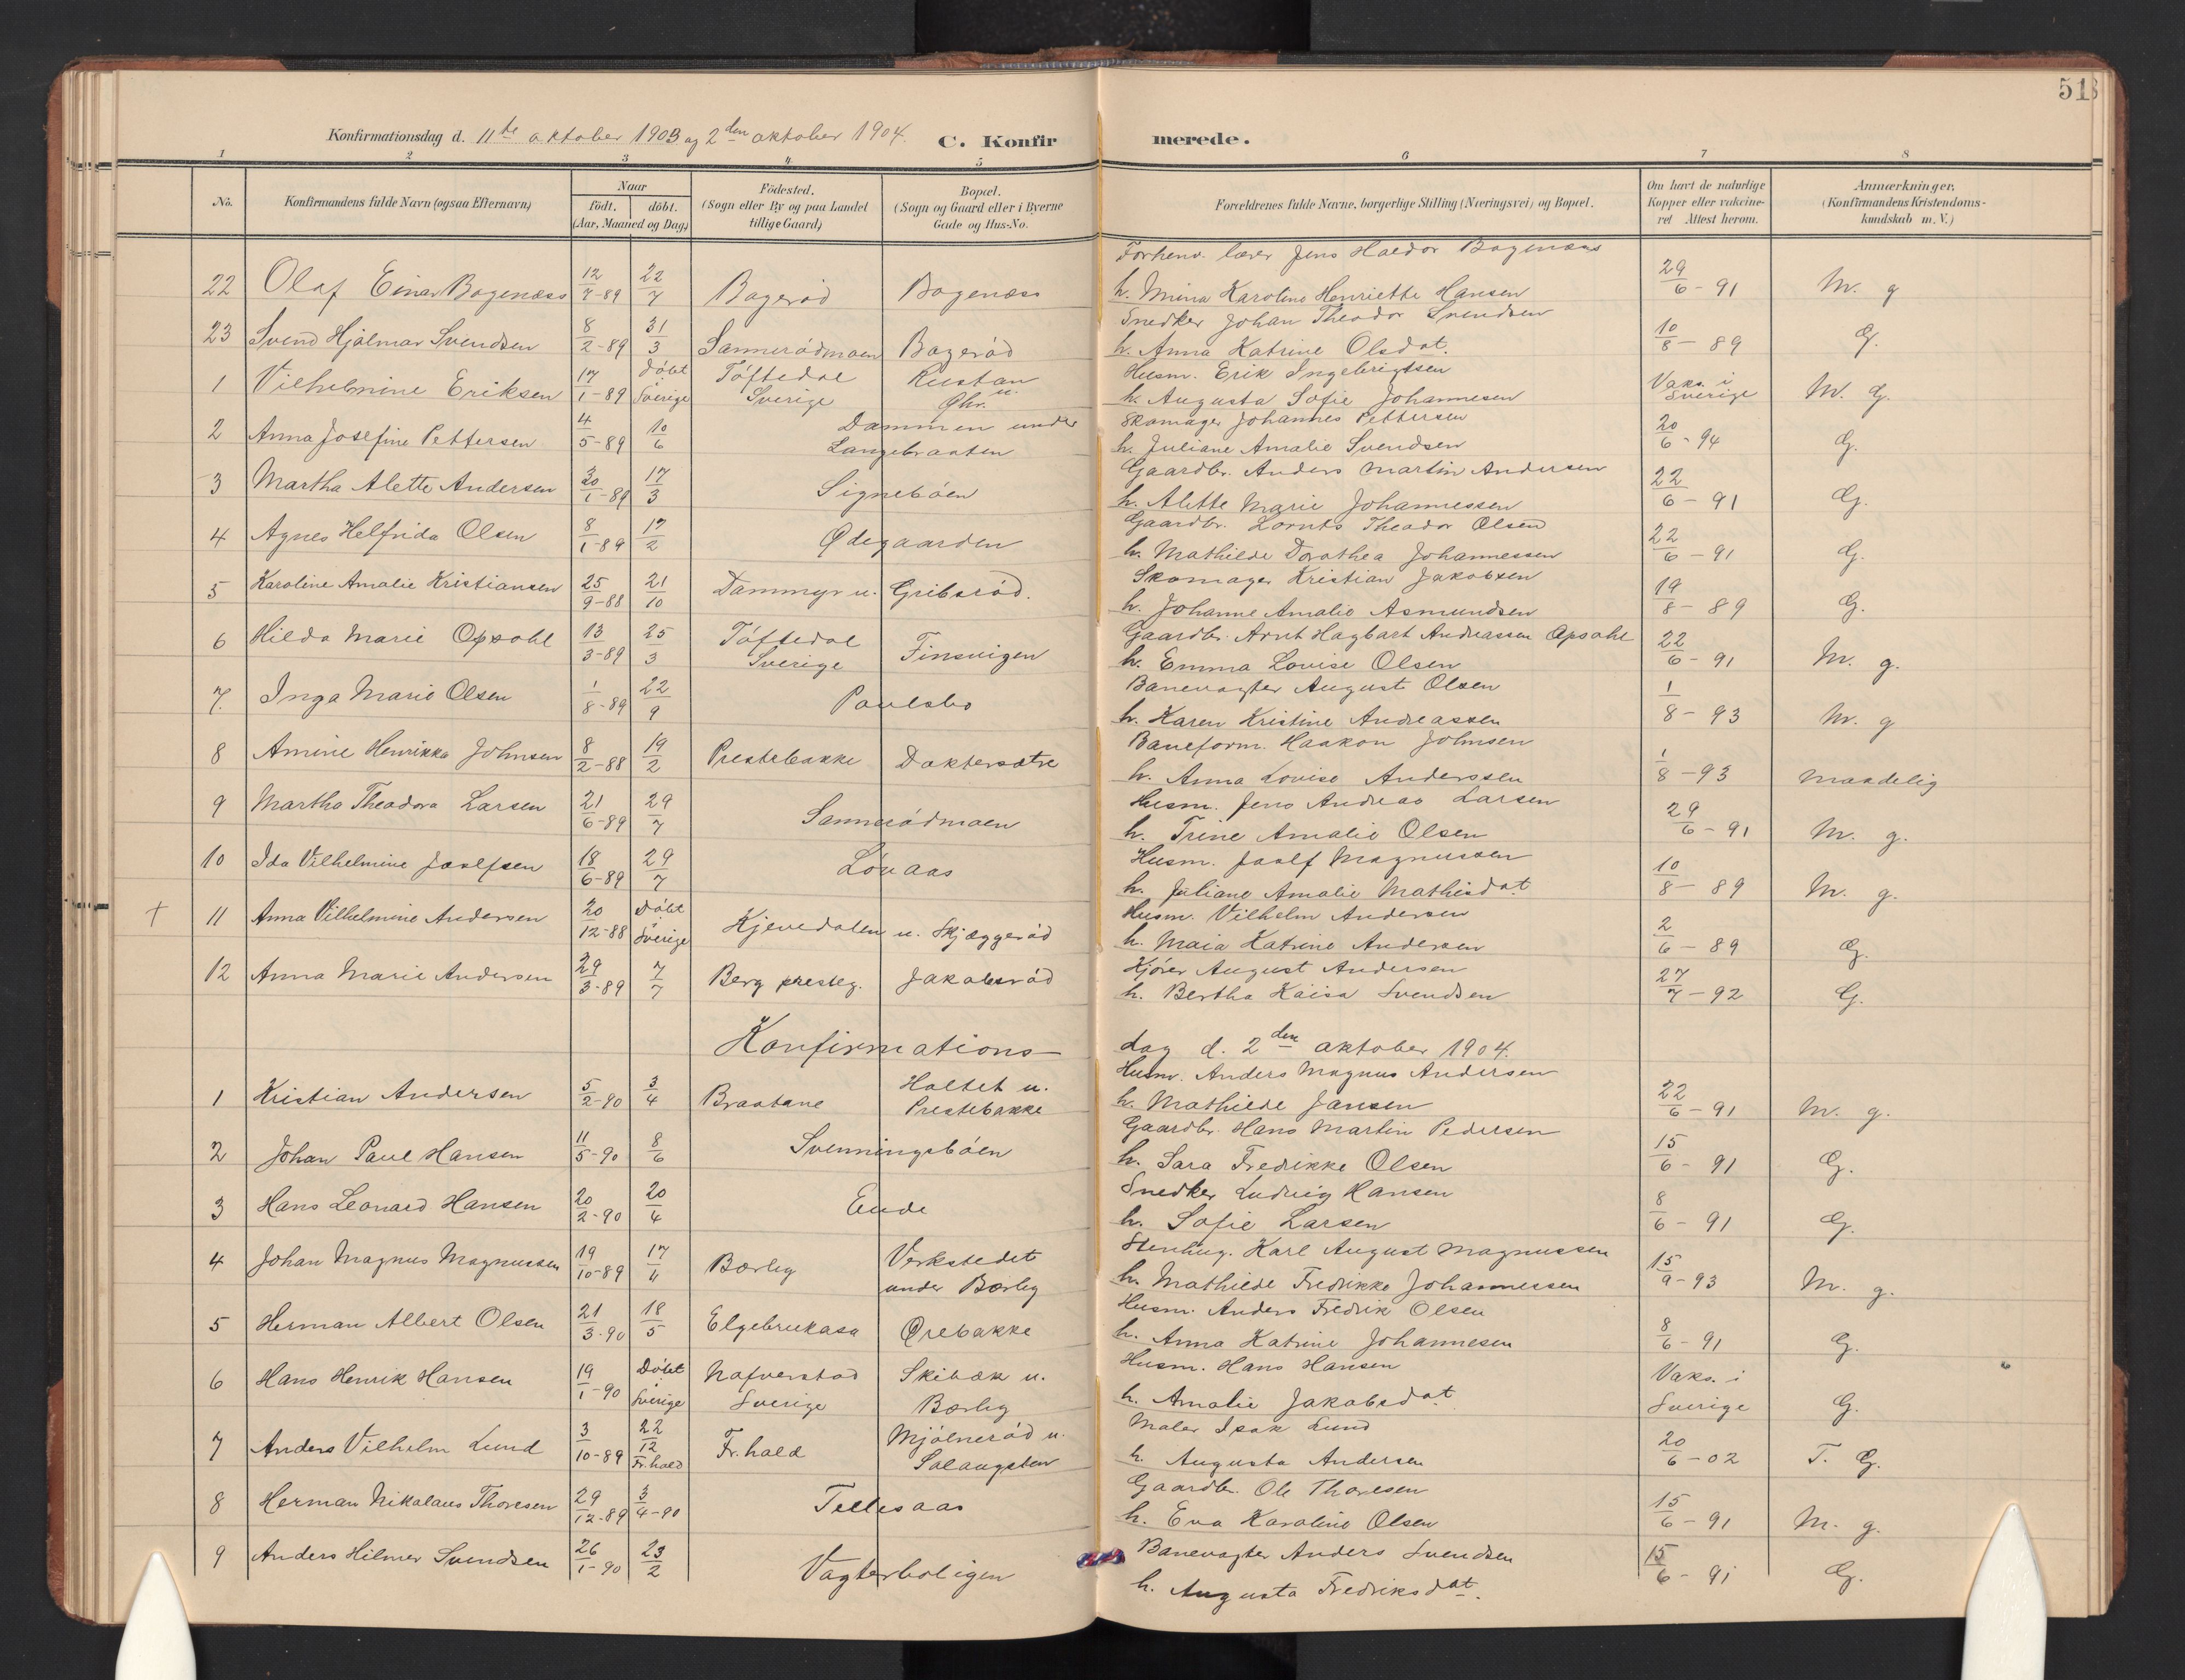 518
Konfirmationsdag d. 11te oktober 1903 og 2den oktober 1904.
C. Konfirmerede.
1 2 3 4 5 6 7 8
No.
Konfirmandens fulde Navn (ogsaa Efternavn)
Naar
født. døbt.
(Aar, Maaned og Dag)
Fødested.
(Sogn eller By og paa Landet
tillige Gaard)
Bopæl.
(Sogn og Gaard eller i Byerne
Gade og Hus-No.
Forældrenes fulde Navne, borgerlige Stilling (Næringsvei) og Bopæl.
Om havt de naturlige
Kopper eller vakcine-
ret Attest herom.
Anmærkninger.
(Konfirmandens Kristendoms-
kundskab m. V.)
Forhenv. lærer Jens Haldor Bagenæss
22 Olaf Einar Bagenæss 12/7-89 22/7 Bagerød Bagenæss h. Mina Karoline Henriette Hansen 29/6-91 M. g
Snedker Johan Theodor Svendsen
23 Svend Hjalmar Svendsen 8/2-89 31/3 Sannerødmoen Bagerød h. Anna Katrine Olsdat. 10/8-89 G.
Døbt Tøftedal Rustan Husm. Erik Ingebrigtsen Vaks. i
1 Vilhelmine Eriksen 17/1-89 Sverige Sverige u. Øhr. h. Augusta Sofie Johannesen Sverige M. G.
Dammen under Skomager Johannes Pettersen
2 Anna Josefine Pettersen 4/5-89 10/6 Langebraaten h. Juliane Amalie Svendsen 20/6-94 G.
Gaardbr. Anders Martin Andersen
3 Martha Alette Andersen 20/1-89 17/3 Signebøen h. Alette Marie Johannessen 22/6-91 G.
Gaardbr. Lornts Theodor Olsen
4 Agnes Helfrida Olsen 8/1-89 17/2 Ødegaarden h. Mathilde Dorothea Johannessen 22/6-91 G.
Skomager Kristian Jakobsen
5 Karoline Amalie Kristiansen 25/9-88 21/10 Dammyr u. Gribsrød. h. Johanne Amalie Asmundsen 19/8-89 G.
Tøftedal Gaardbr. Arnt Hagbart Andreassen Opsahl
6 Hilda Marie Opsahl 13/3-89 25/3 Sverige Finsvigen h. Emma Lovise Olsen 22/6-91 M. g.
Banevogter August Olsen
7. Inga Marie Olsen 1/8-89 22/9 Paulsbo h. Karen Kristine Andreassen 1/8-93 M. g
Baneform. Haakon Johnsen
8 Amine Henrikke Johnsen 8/2-88 19/2 Prestebakke Doktersætre h. Anna Lovise Anderssen 1/8-93 maadelig
Husm. Jens Andreas Larsen
9 Martha Theodora Larsen 21/6-89 29/7 Sannerødmoen h. Trine Amalie Olsen 29/6-91 M. g.
Husm. Joolf Magnussen
10 Ida Vilhelmine Joolfsen 18/6-89 29/7 Lønaas h. Juliane Amalie Mathisdat 10/8-89 M. g.
Husm. Vilhelm Andersen
+ 11 Anna Vilhelmine Andersen 20/12-88 Døbt i Sverige Kjevedalen u. Skjeggerød h. Maia Katrine Andersen 2/6-89 G.
Kjører August Andersen
12 Anna Marie Andersen 29/3-89 7/7 Berg presteg. Jakobsrød h. Bertha Kaisa Svendsen 27/7-92 G.
Konfirmationsdag d. 2den oktober 1904.
Holtet u. Husm. Anders Magnus Andersen
1 Kristian Andersen 5/2-90 3/4 Braatane Prestebakke h. Mathilde Jansen 22/6-91 M. g.
Gaardbr. Hans Martin Pedersen
2 Johan Paul Hansen 11/5-90 8/6 Svenningsbøen h. Sara Fredrikke Olsen 15/6-91 G.
Snedker Ludvig Hansen
3 Hans Leonard Hansen 20/2-90 20/4 Ende h. Sofie Larsen 8/6-91 G.
Verkstedet Stenhug. Karl August Magnussen
4 Johan Magnus Magnussen 19/10-89 17/11 Bærby under Bærby h. Mathilde Fredrikke Johannessen 15/9-93 M. g.
Husm. Anders Fredrik Olsen
5 Herman Albert Olsen 21/3-90 18/5 Elgebrukasa Ørebakke h. Anna Katrine Johannesen 8/6-91 G.
Døbt i Nafverstad Skibæk u. Husm. Hans Hansen Vaks. i
6 Hans Henrik Hansen 19/1-90 Sverige Sverige Bærby h. Amalie Jakobsdat Sverige G.
Mjølnerød u. Maler Isak Lund
7 Anders Vilhelm Lund 3/10-89 22/12 Fr.hald Fr.hald Solangsten h. Augusta Andersen 20/6-02 T. G.
Gaardbr. Ole Thoresen
8 Herman Nikolaus Thoresen 29/12-89 3/4-90 Tellesaas h. Eva Karoline Olsen 15/6-91 M. g.
Banevogter Anders Svendsen
9 Anders Hilmer Svendsen 26/1-90 23/2 Vagterboligen h. Augusta Fredriksdat. 15/6-91 G.